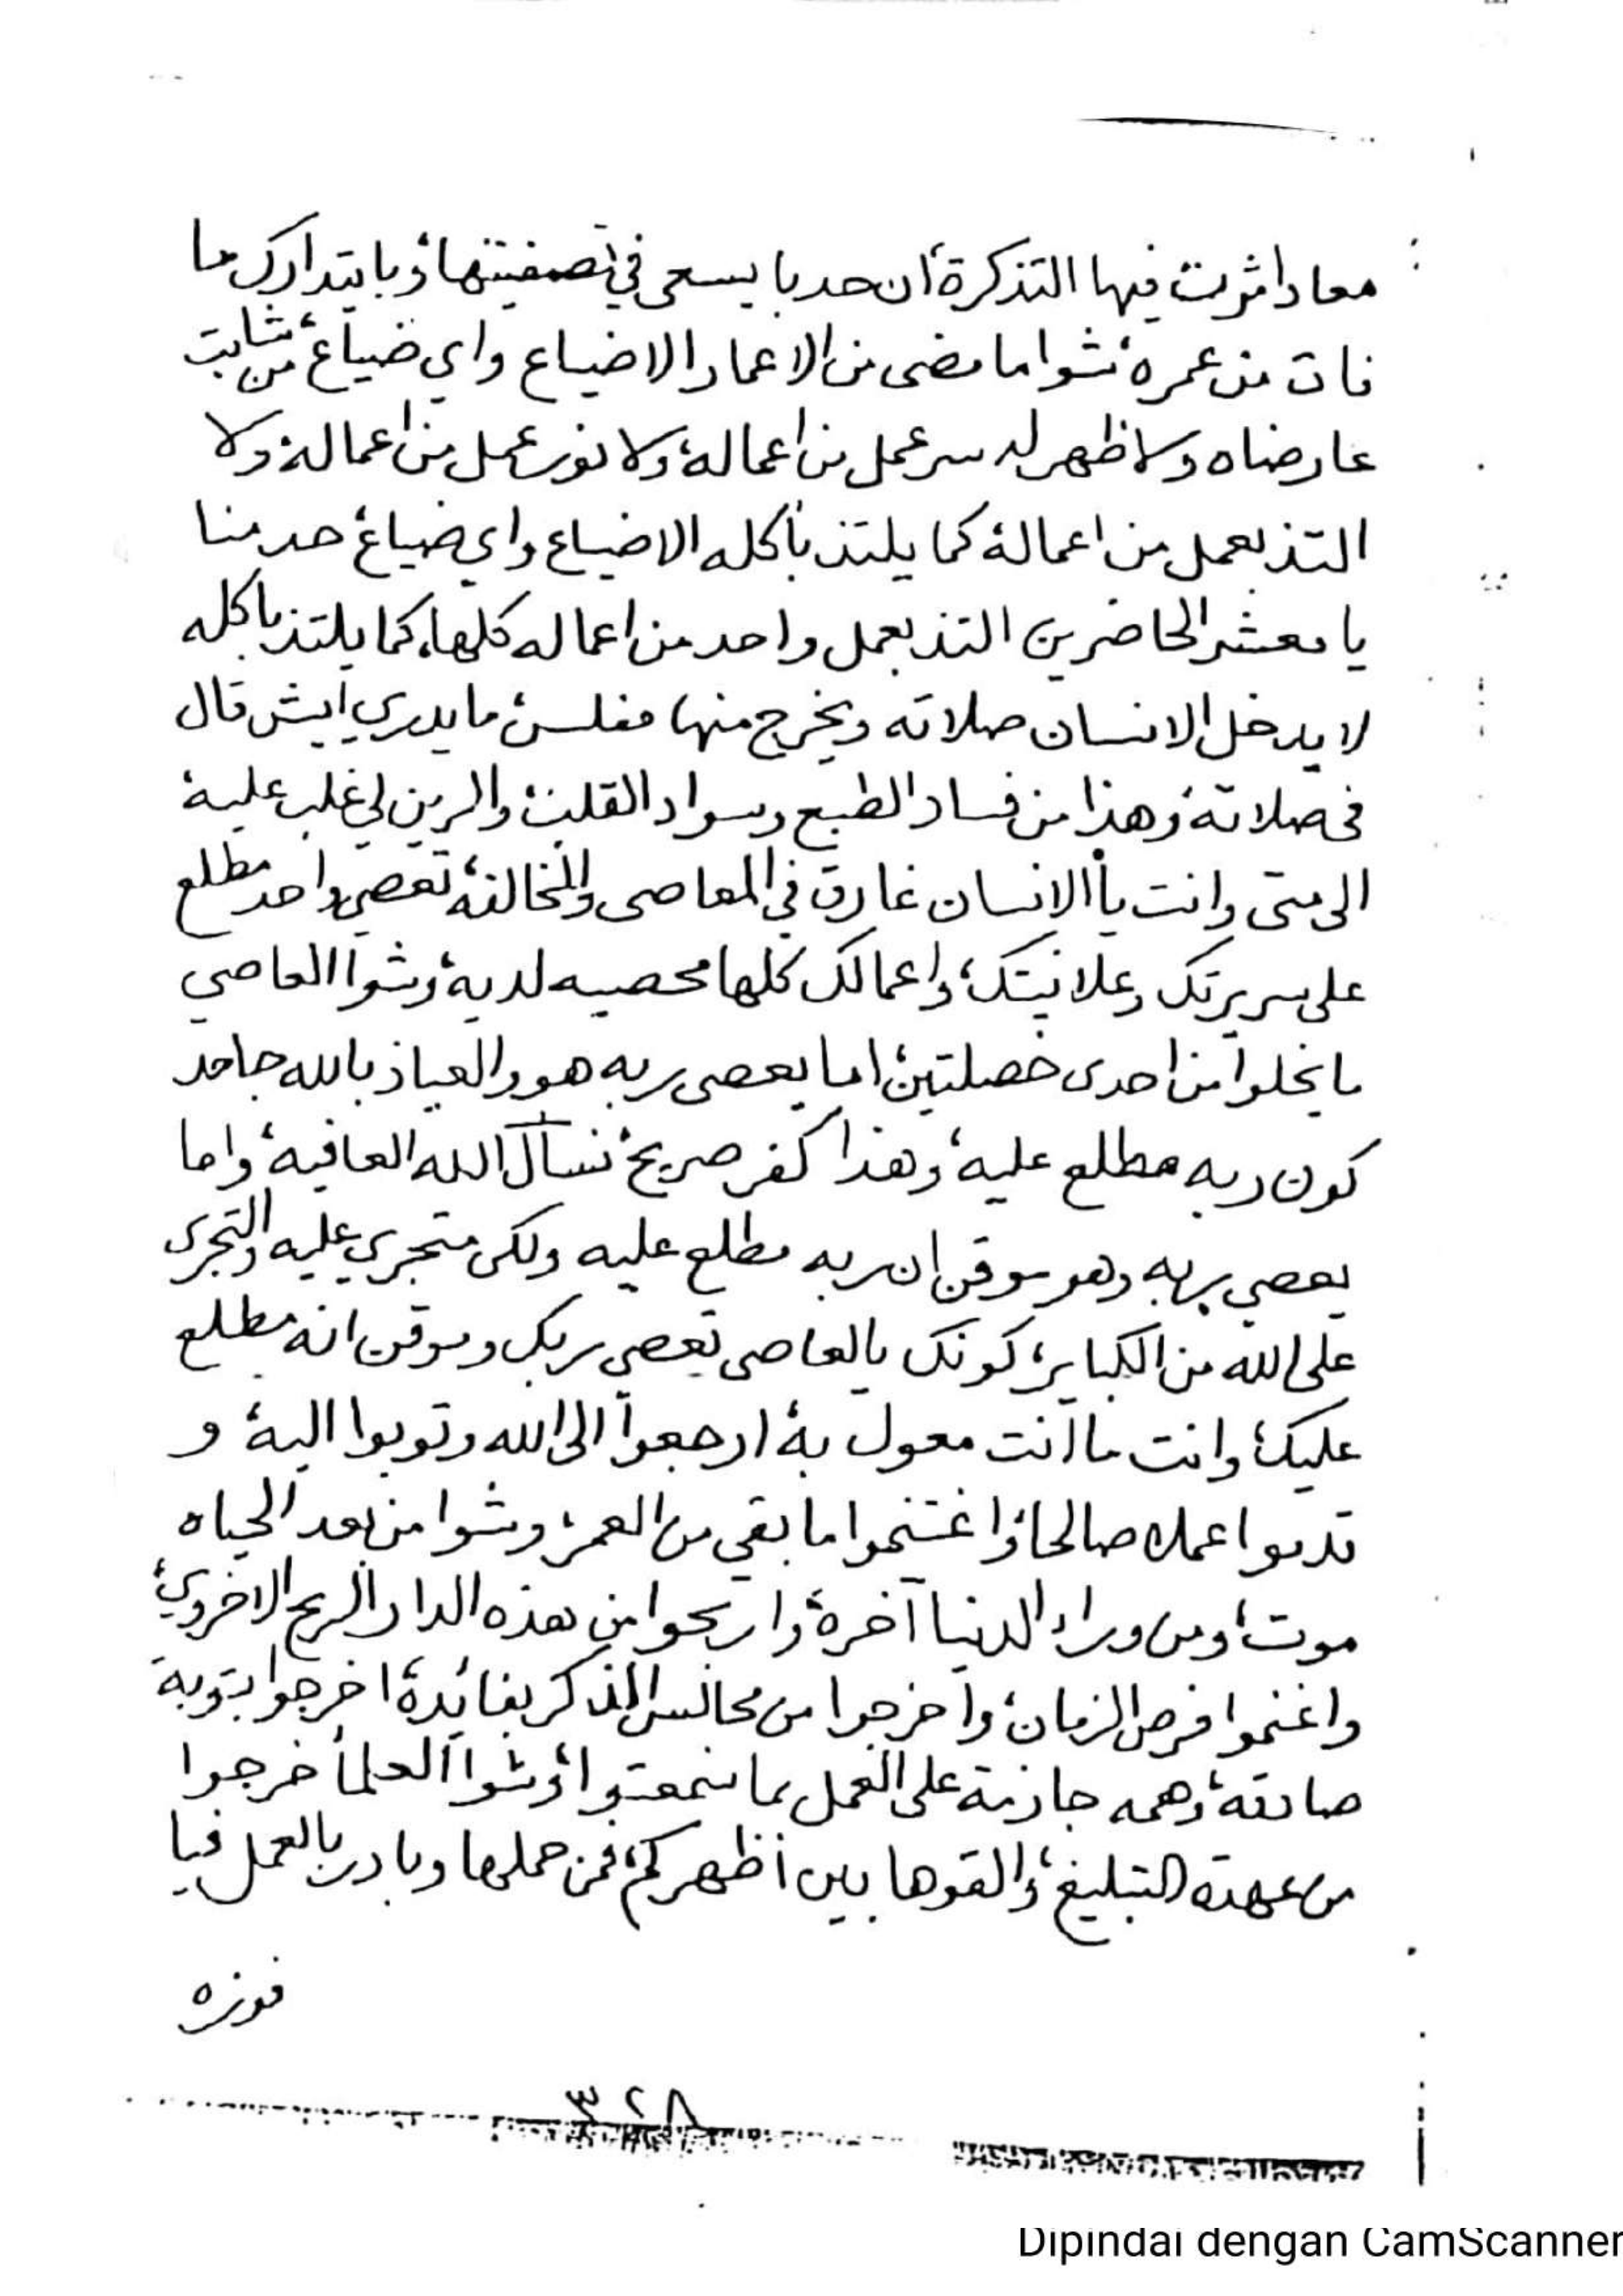 معاد اثرت فيها التذكرة، ان حد با يسعى في تصفيتها، وبا يتدارك ما
فات من عمره، شوا ما مضى من الاعمار الا ضياع واي ضياع، من شابت
عارضاه ولا ظهر له سر عمل من اعماله، ولا نور عمل من اعماله، ولا
التذ بعمل من اعماله، كما يلتذ بأكله الا ضياع واي ضياع، حد منا
يا معشر الحاضرين التذ بعمل واحد من اعماله كلها، كما يلتذ باكله
لا يدخل الانسان صلاته ويخرج منها مفلس، ما يدري أيش قال
في صلاته، وهذا من فساد الطبع وسواد القلب، والرين لي غلب عليه،
الى متى وانت يا الانسان غارق في المعاصى والمخالفة، تعصي واحد مطلع
على سريرتك وعلانيتك، واعمالك كلها محصيه لديه، وشوا العاصي
ما يخلوا من احدى خصلتين، اما يعصى ربه هو والعياذ بالله جاحد
كون ربه مطلع عليه، وهذا كفر صريح، نسأل الله العافيه، واما
يعصي ربه وهو موقن ان ربه مطلع عليه ولكن متجري عليه والتجرى
على الله من الكباير، كونك يا العاصى تعصى ربك وموقن انه مطلع
عليك، وانت ما أنت معول به، ارجعوا الى الله وتوبوا اليه، و
قدموا عملا صالحا، واغتنموا ما بقي من العمر، وشوا من بعد الحياه
موت، ومن وراء الدنيا آخرة، واربحوا من هذه الدار الربح الاخروي،
واغنموا فرص الزمان، واخرجوا من مجالس الذكر بفائدة، اخرجوا بتوبة
صادقة، وهمه جازمة على العمل بما سمعتوا، وشوا العلما خرجوا
من عهدة التبليغ، والقوها بين أظهركم، فمن حملها وبادر بالعمل فيا
فوزه
٣٢٨
Dipindai dengan CamScanner